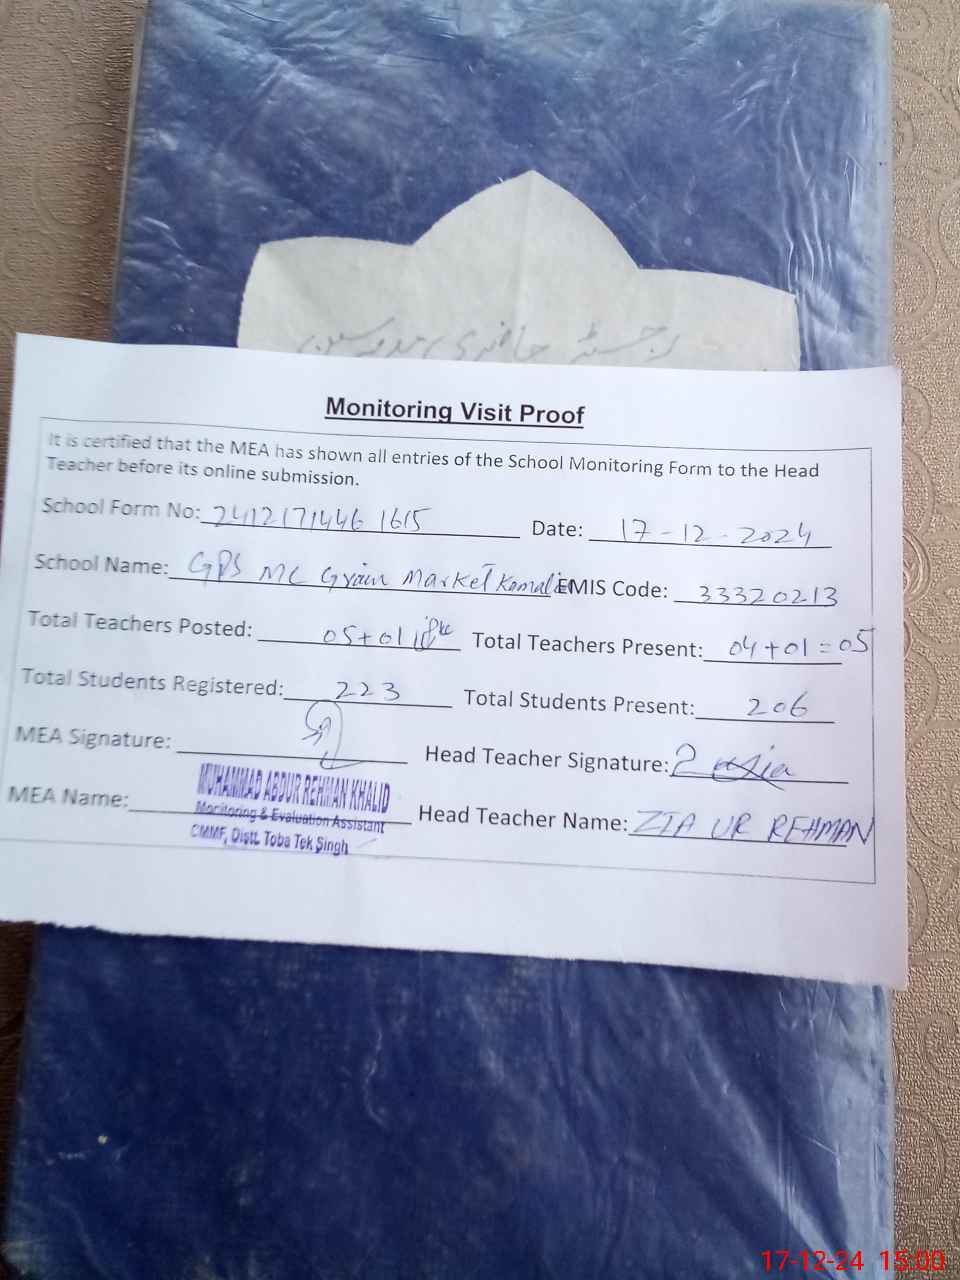 رجسٹر حاضری مدرسین
Monitoring Visit Proof
It is certified that the MEA has shown all entries of the School Monitoring Form to the Head
Teacher before its online submission.
School Form No: 2412171446 1615 Date: 17-12-2024
School Name: GPS MC Grain Market Kamalia EMIS Code: 33320213
Total Teachers Posted: 05+01 Total Teachers Present: 04+01=05
Total Students Registered: 223 Total Students Present: 206
MEA Signature: Head Teacher Signature:
MEA Name: MUHAMMAD ABDUR REHMAN KHALID Head Teacher Name: ZIA UR REHMAN
Monitoring & Evaluation Assistant
CMMF, Distt. Toba Tek Singh
17-12-24 15:00